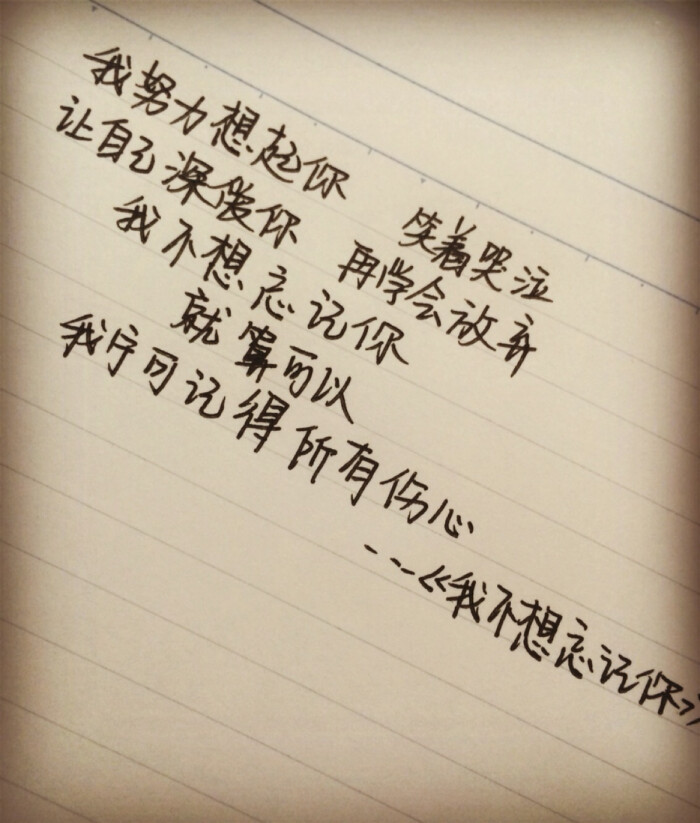 我努力想起你 笑着哭泣
让自己深爱你 再学会放弃
我不想忘记你
就算可以
我宁可记得所有伤心
---《我不想忘记你》